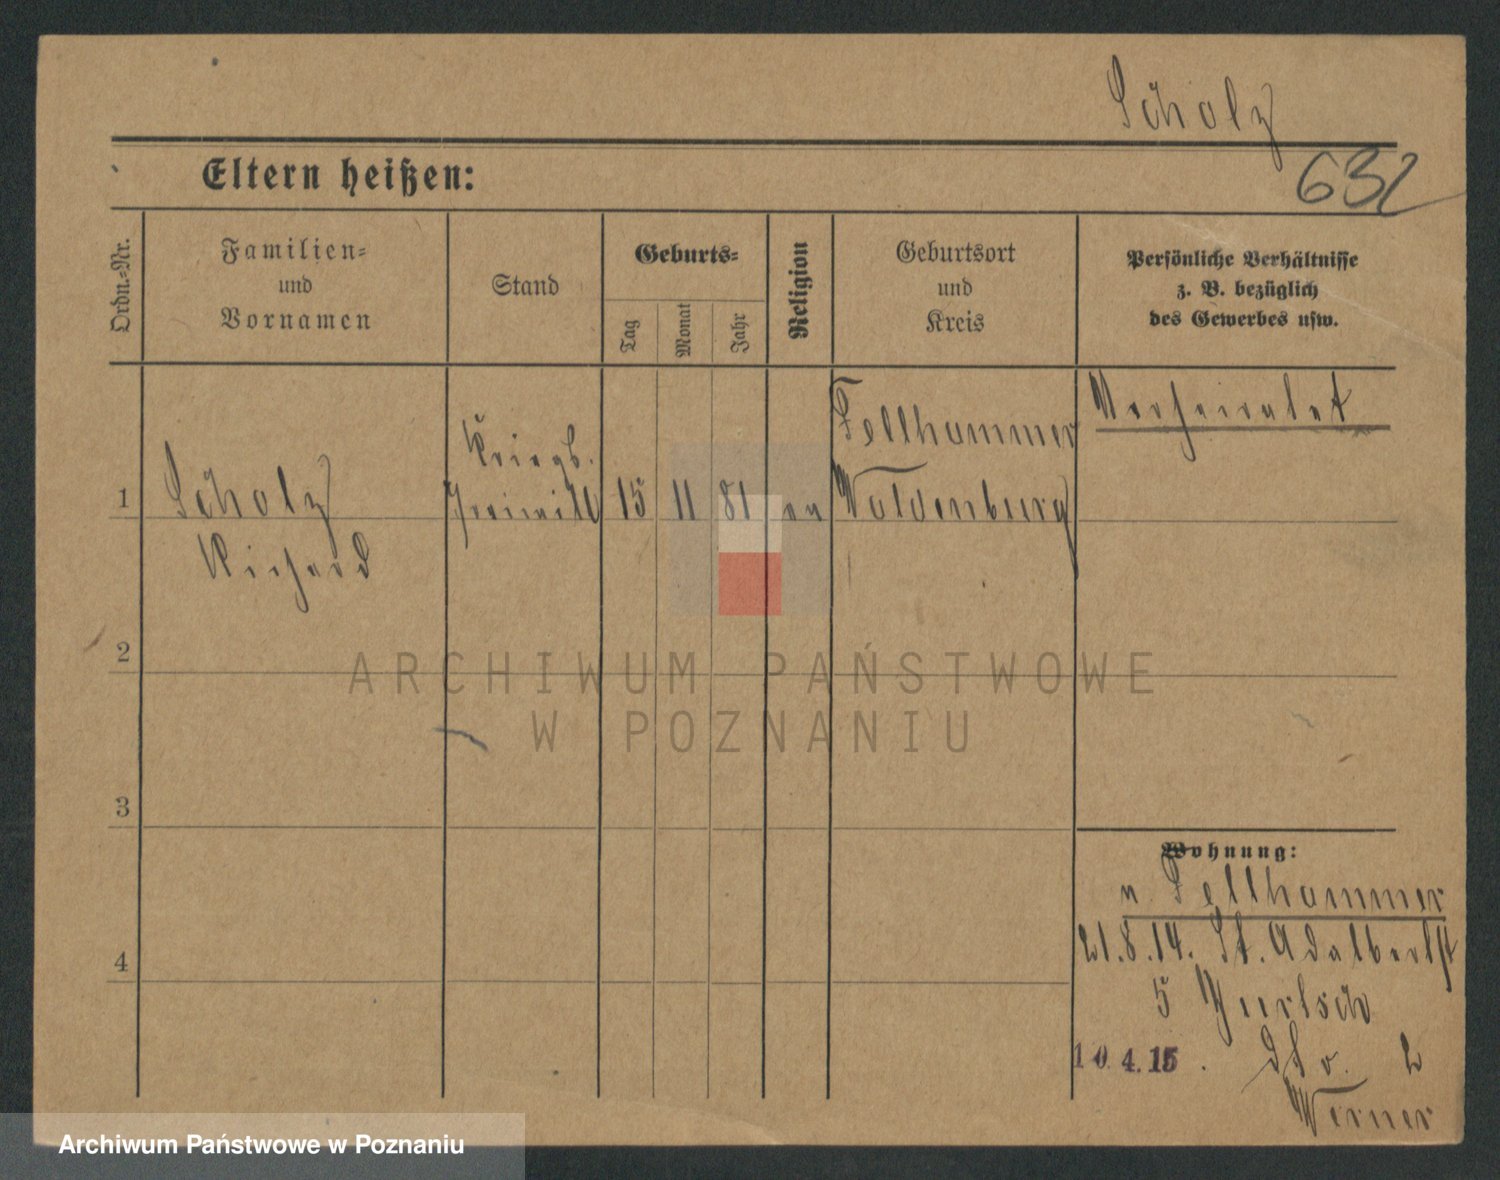 Scholz
632
Eltern heißen:
Ordn.=Nr.
Familien=
und
Vornamen
Stand
Geburts=
Tag
Monat
Jahr
Religion
Geburtsort
und
Kreis
Persönliche Verhältnisse
z. B. bezüglich
des Gewerbes usw.
1
Scholz
Richard
Kriegs.
Freiwill
15
11
81
ev
Fellhammer
Waldenburg
Verheiratet
2
3
4
Wohnung:
v Fellhammer
21.8.14. St. Adalbertst
5
10.4.15. dto. 2
Werner
ARCHIWUM PAŃSTWOWE
W POZNANIU
Archiwum Państwowe w Poznaniu